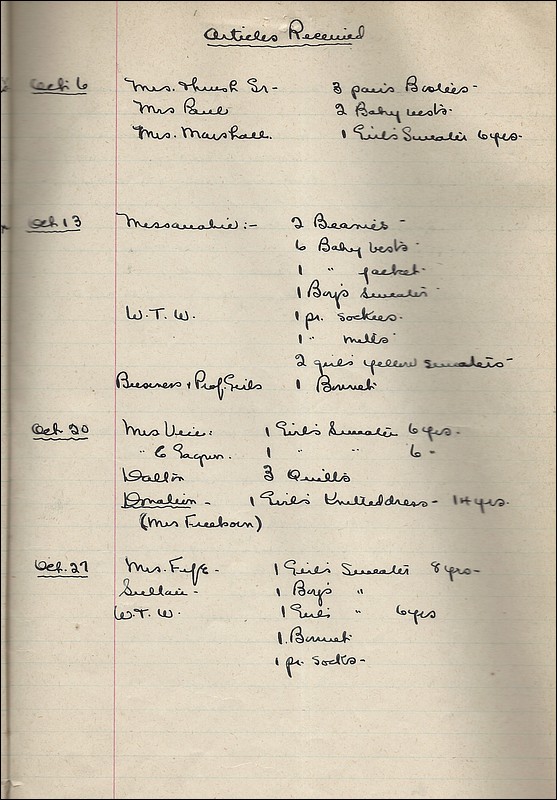 Articles Received
Oct. 6 Mrs. Thrush Sr- 3 pairs Bootees-
Mrs Paul 2 Baby vests-
Mrs. Marshall. 1 Girl's Sweater 6 yrs-
Oct. 13 Missanabie:- 2 Beanies -
6 Baby vests-
1 " jacket-
1 Boy's Sweater
W. T. W. 1 pr. sockees-
1 " mitts
2 girls yellow sweaters-
Business & Prof. Girls 1 Bonnet
Oct. 20 Mrs 1 Girl's Sweater 6 yrs-
" 1 " " 6 -
Dalton 3 Quilts
Donation - 1 Girl's Knitted dress - 14 yrs.
(Mrs Freeborn)
Oct. 27 Mrs. Fyfe- 1 Girl's Sweater 8 yrs-
Sultan- 1 Boy's "
W. T. W. 1 Girl's " 6 yrs
1. Bonnet
1 pr. socks-